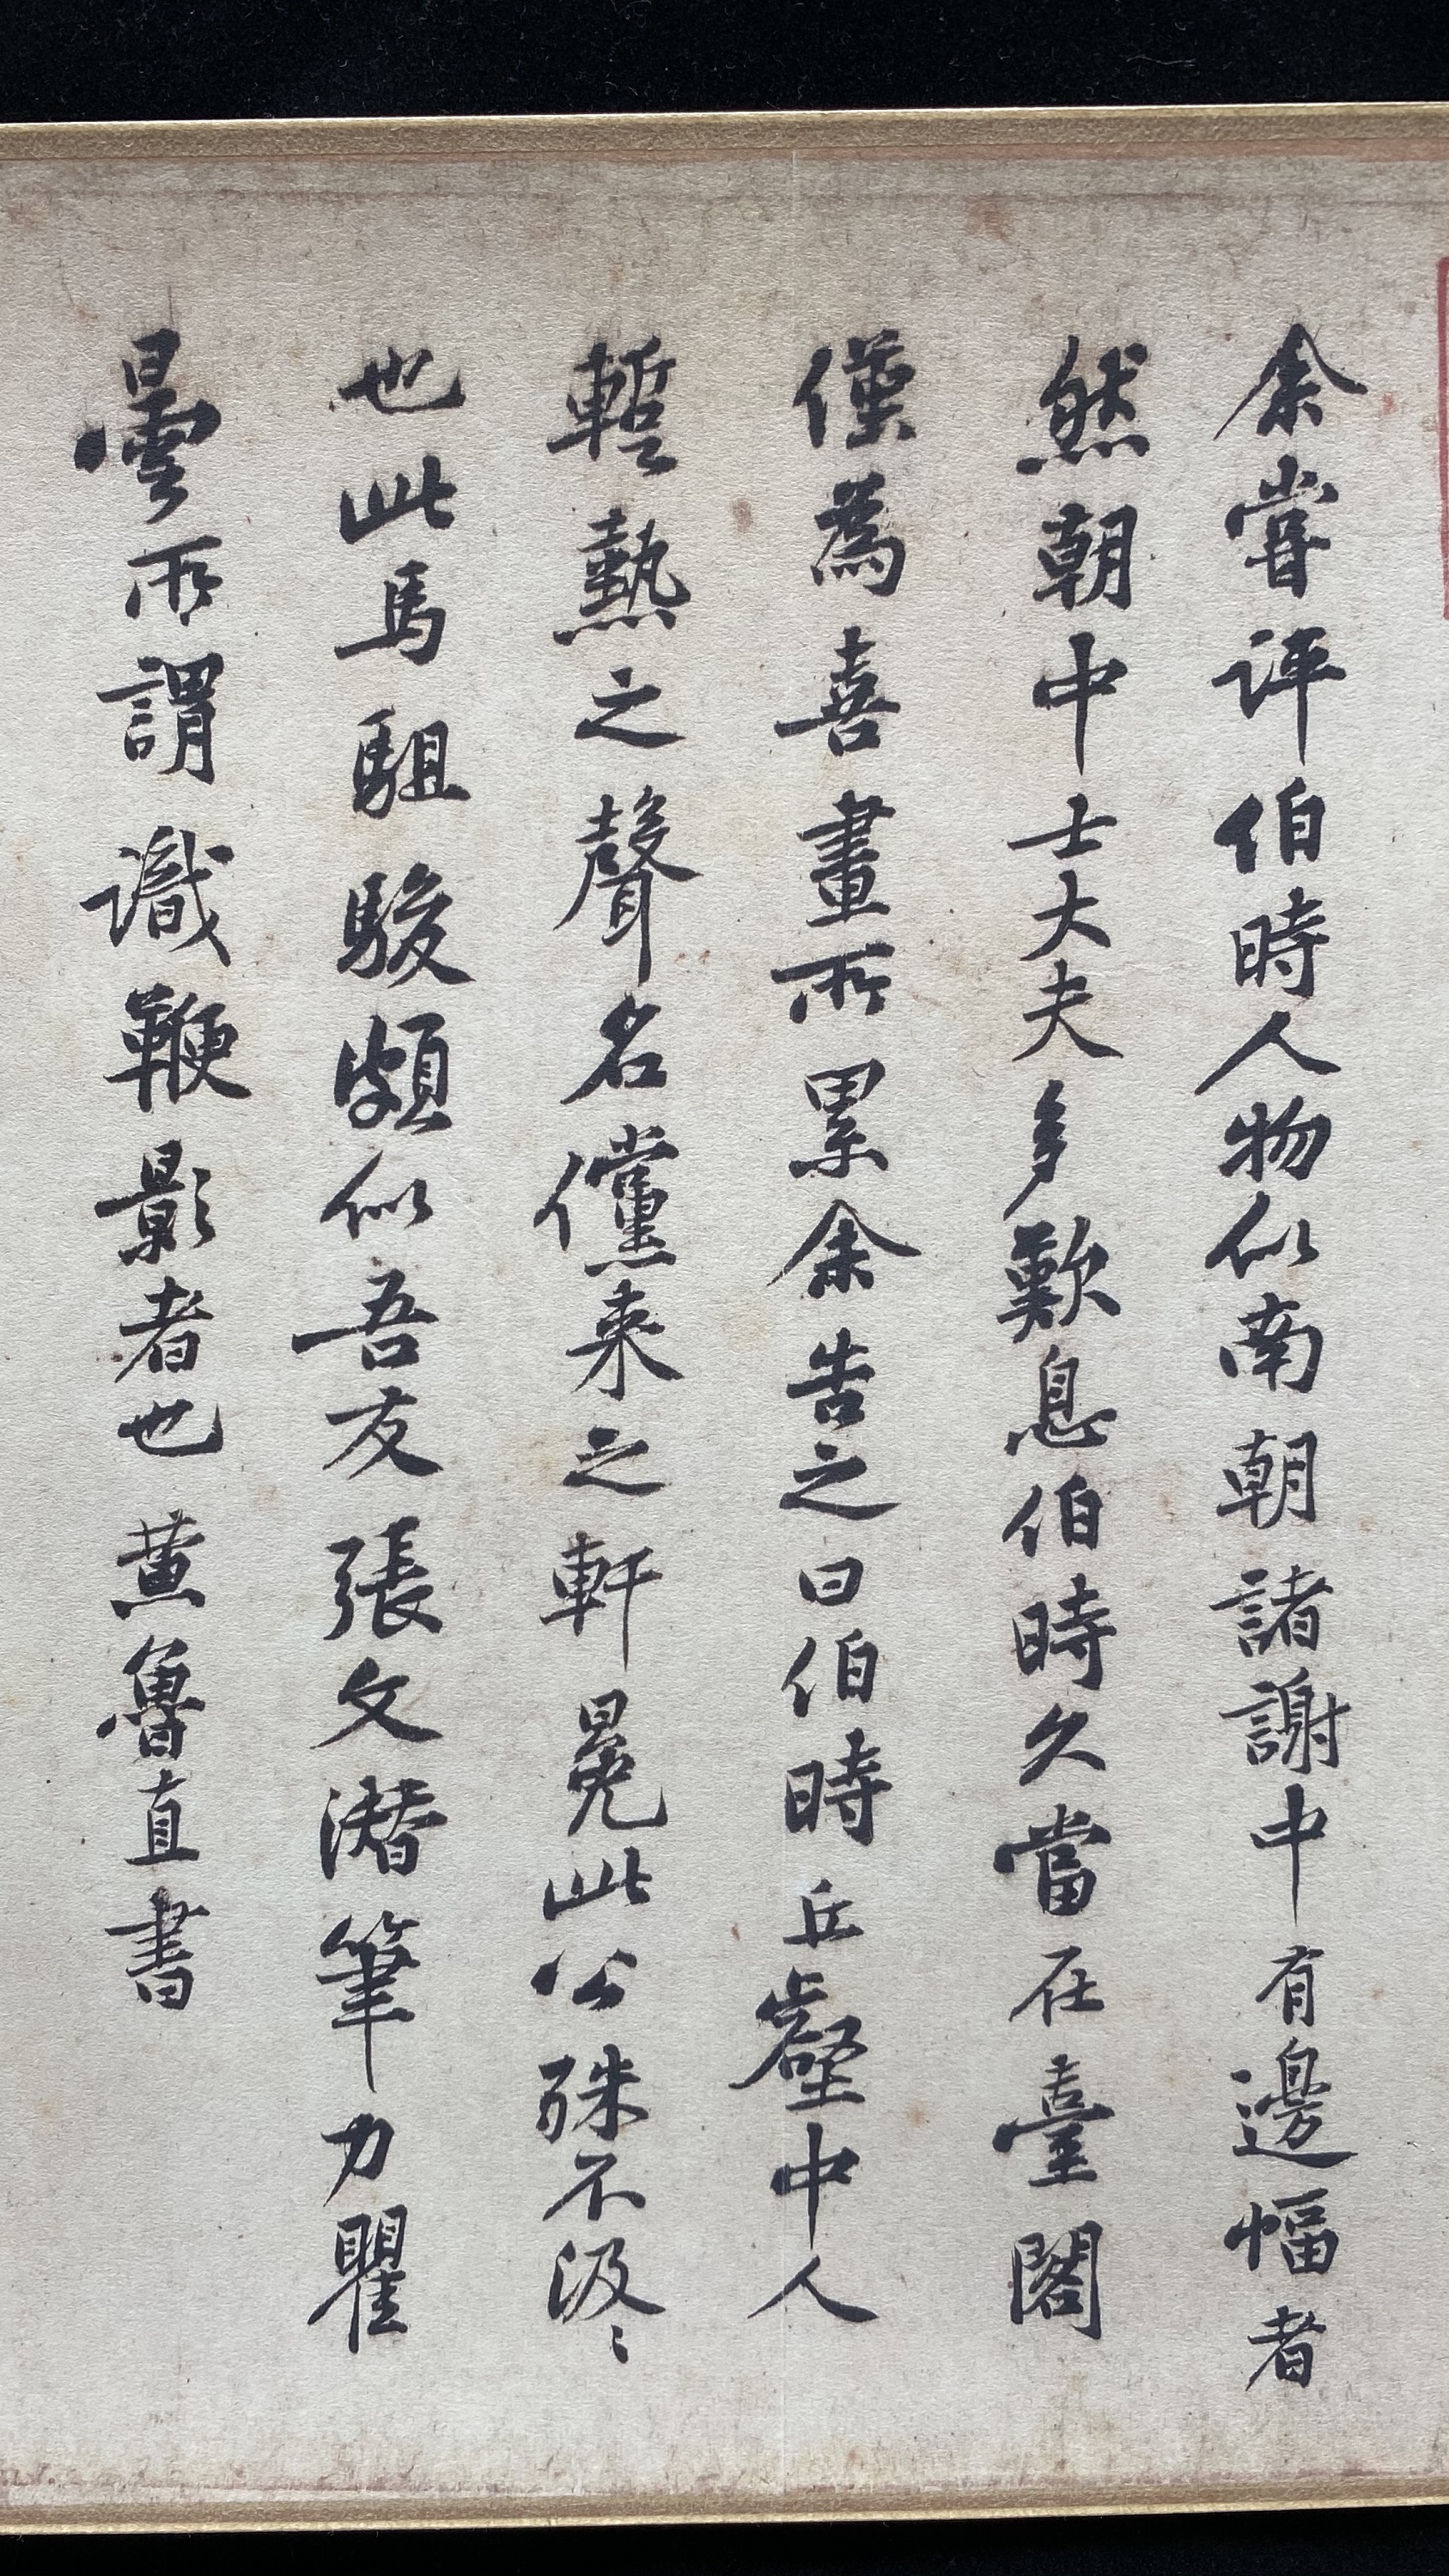 余嘗評伯時人物似南朝諸謝中有邊幅者
然朝中士大夫多歎息伯時久當在臺閣
僅為喜畫所累余告之曰伯時丘壑中人
暫熱之聲名儻来之軒冕此公殊不汲〻
也此馬駔駿頗似吾友張文潛筆力瞿
曇所謂識鞭影者也黃魯直書